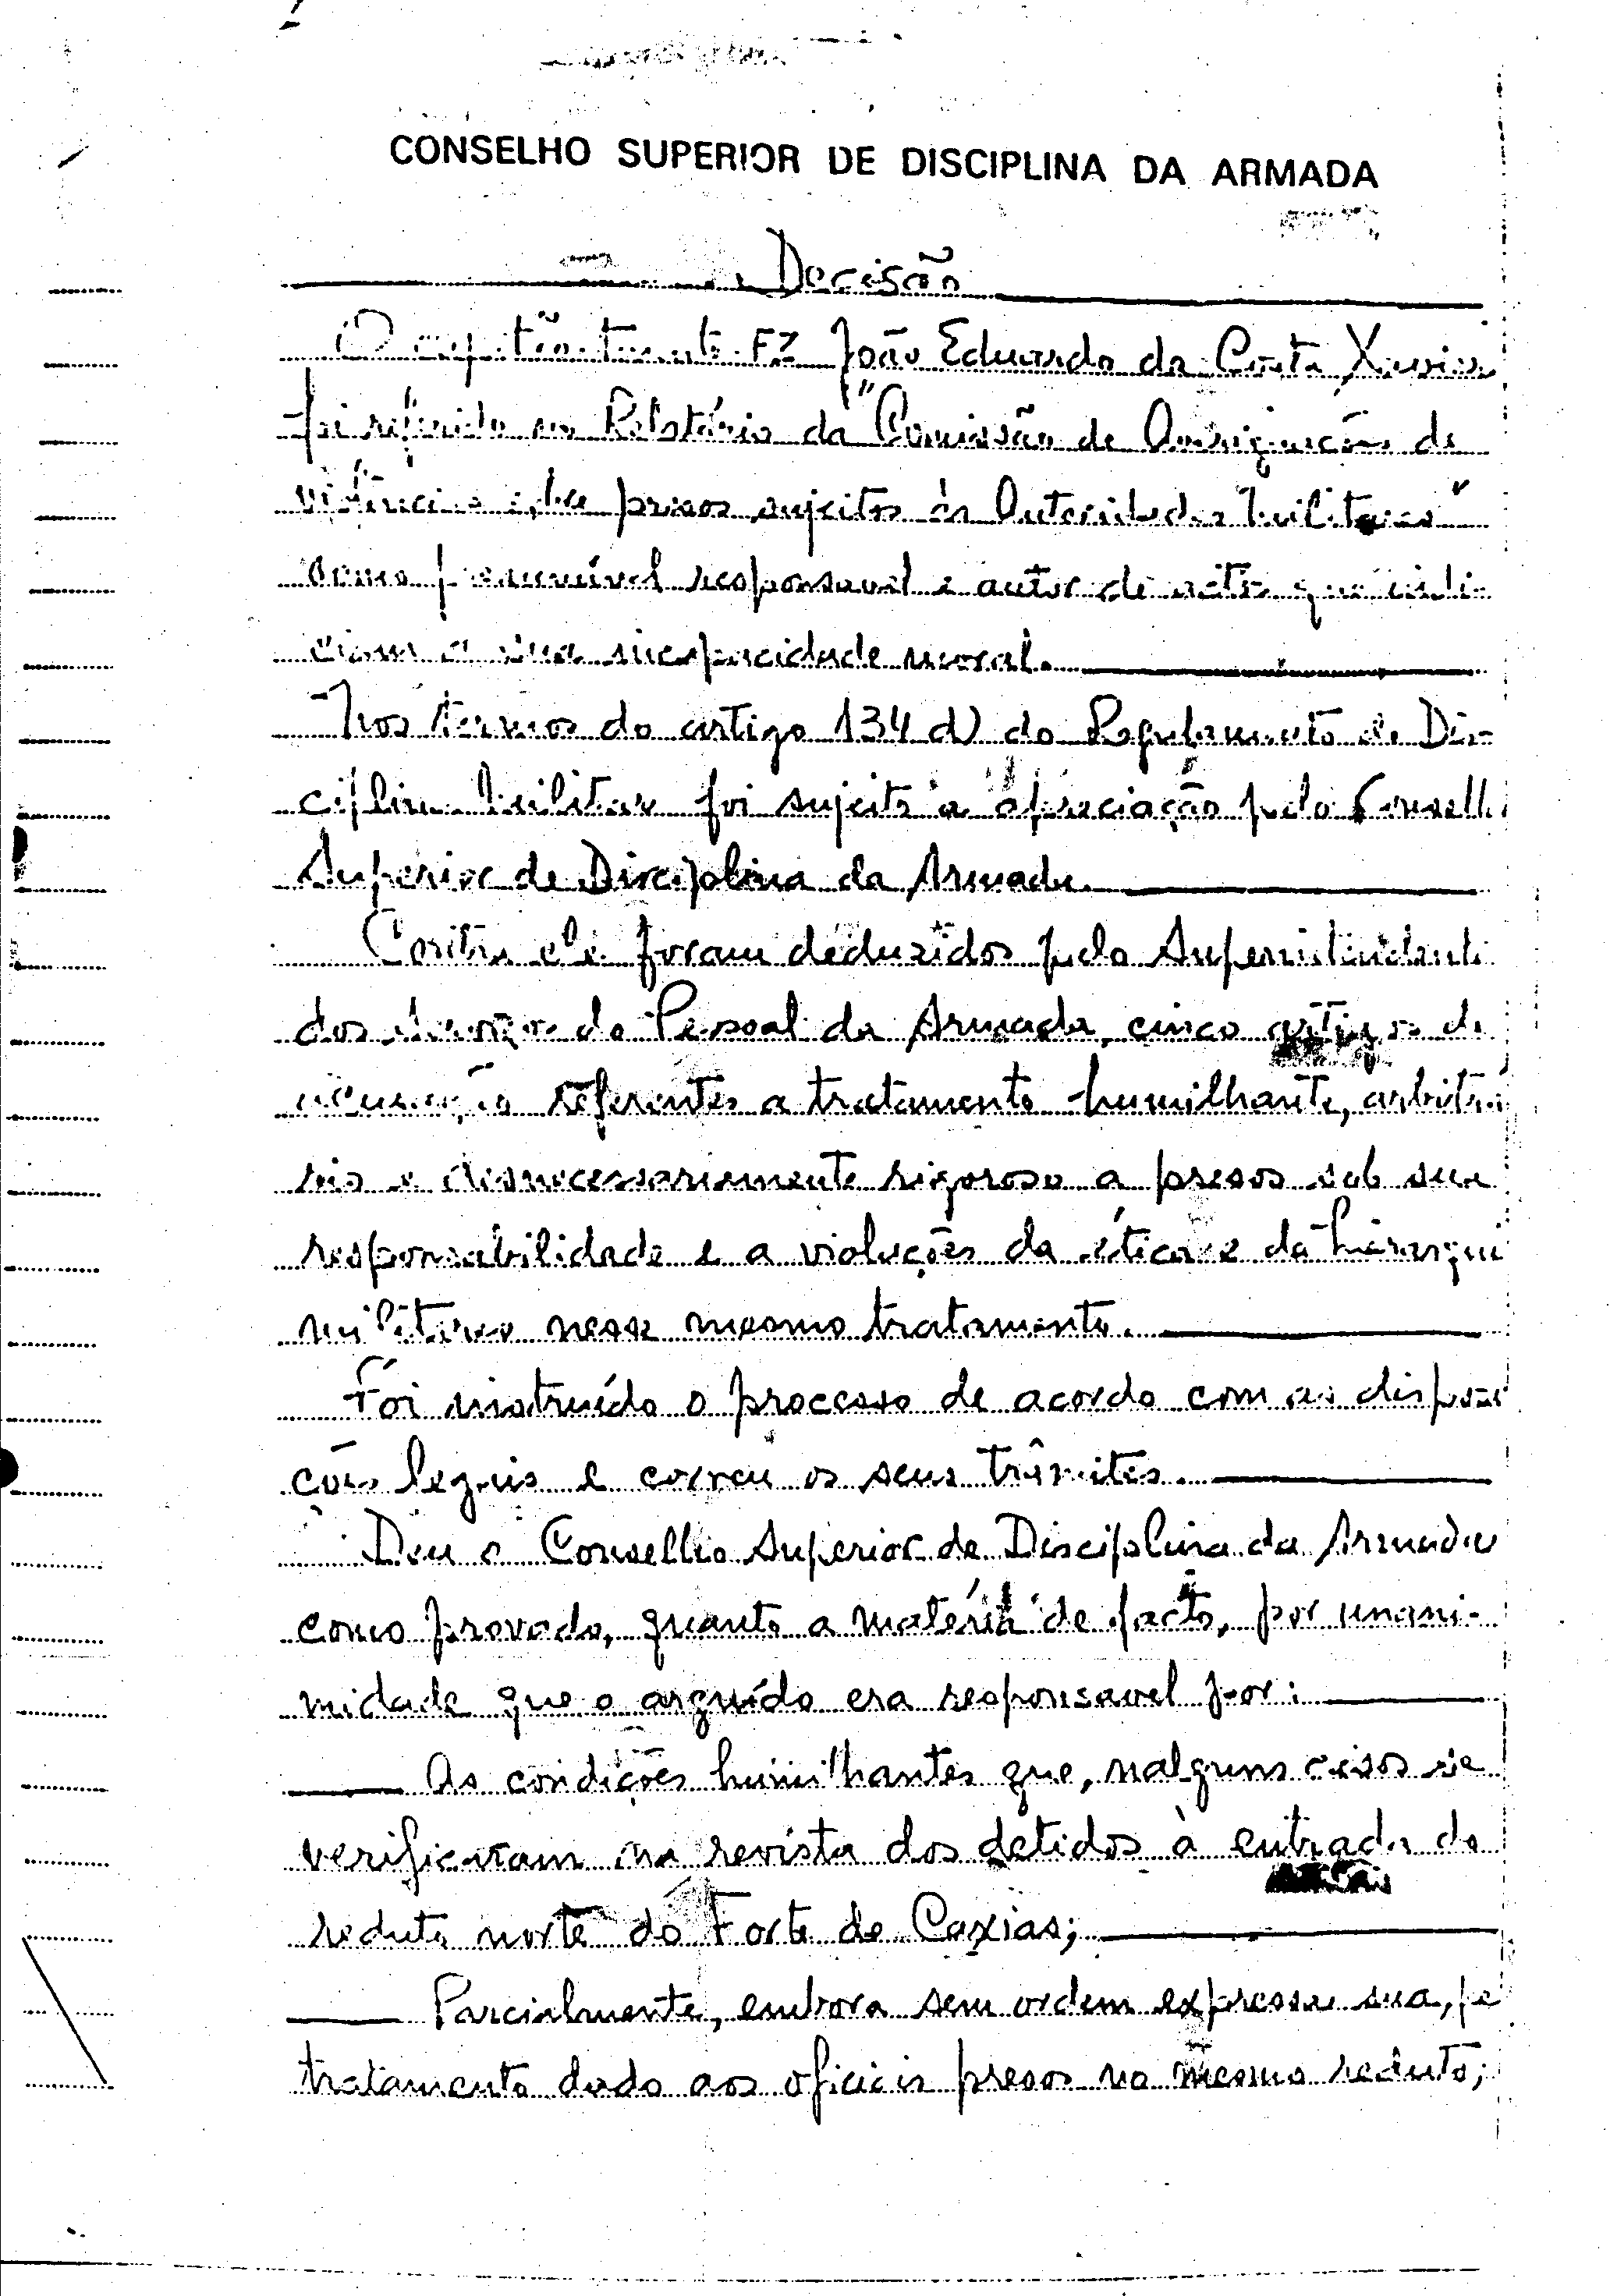 CONSELHO SUPERIOR DE DISCIPLINA DA ARMADA
Decisão
O capitão-tenente FZ João Eduardo da Costa Xavier
foi referido no Relatório da "Comissão de Averiguação de
violências sobre presos sujeitos às Autoridades Militares"
como presumível responsavel e autor de actos que indi-
ciam a sua incapacidade moral.
Nos termos do artigo 134 d) do Regulamento de Dis-
ciplina Militar foi sujeito a apreciação pelo Conselho
Superior de Disciplina da Armada.
Contra ele foram deduzidos pelo Superintendente
dos Serviços do Pessoal da Armada, cinco artigos de
acusação referentes a tratamento humilhante, arbitrá
rio e desnecessariamente rigoroso a presos sob sua
responsabilidade e a violações da ética e da hierarquia
militares nesse mesmo tratamento.
Foi instruído o processo de acordo com as disposi
ções legais e correu os seus trâmites.
Deu o Conselho Superior de Disciplina da Armada
como provado, quanto a matéria de facto, por unani-
midade que o arguído era responsavel por:
As condições humilhantes que, nalguns casos se
verificaram na revista dos detidos à entrada do
reduto norte do Forte de Caxias;
Parcialmente, embora sem ordem expressa sua,
tratamento dado aos oficiais presos no mesmo reduto;